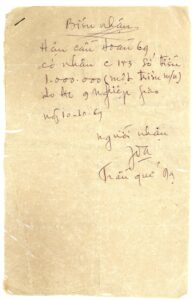 Biên nhận
Hầu cần Hoàn 69
có nhận c 173 số tiền
1.000.000 (một triệu
do HC 9 Nghiệp giao
10-10-69
người nhận
Trần quế